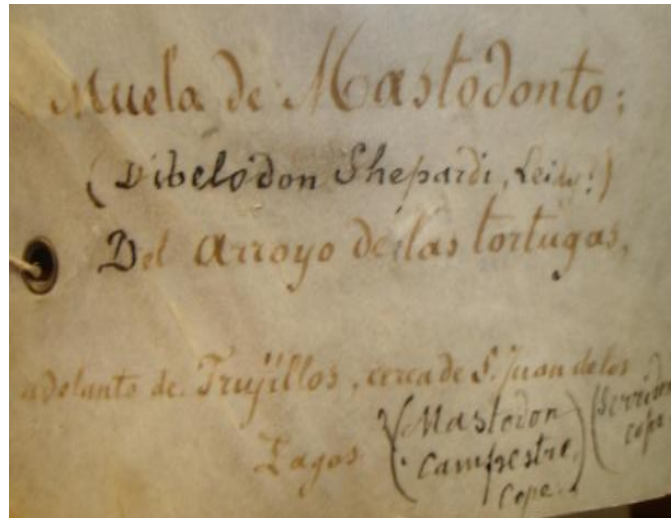 Muela de Mastodonto:
(Dibelodon Shepardi, Leidy.)
Del arroyo de las tortugas,
adelante de Trujillos, cerca de S. Juan de los
Lagos (Mastodon
Campestre,
Cope.)